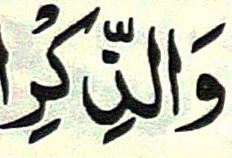 وَالذِّكْرِ ا